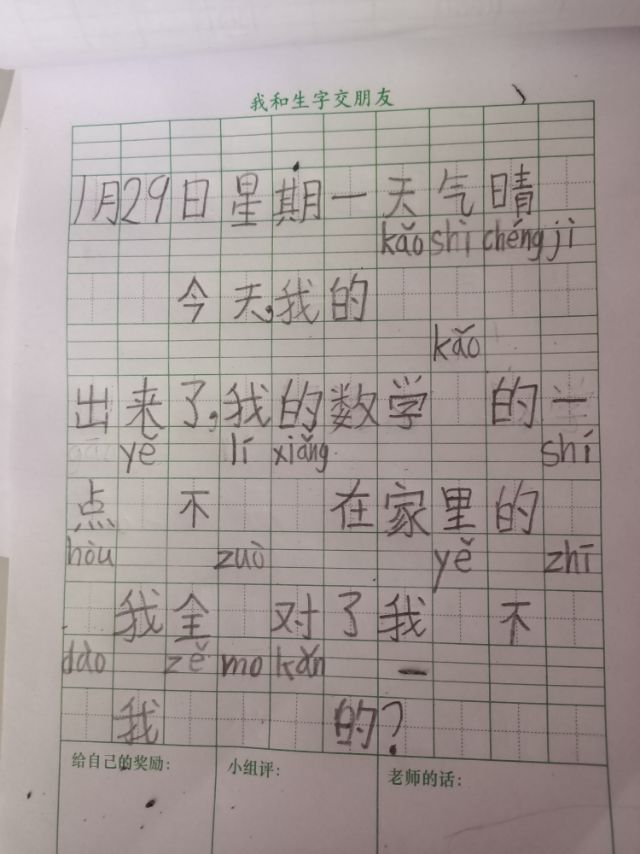 我和生字交朋友
1月29日星期一天气晴
kǎo shì chéng jì
今天,我的
kǎo
出来了,我的数学 的一
yě lí xiǎng shí
点 不 在家里的
hòu zuò yě zhī
我全 对了我 不
dào zě mo kǎn
我 的?
给自己的奖励:
小组评:
老师的话: